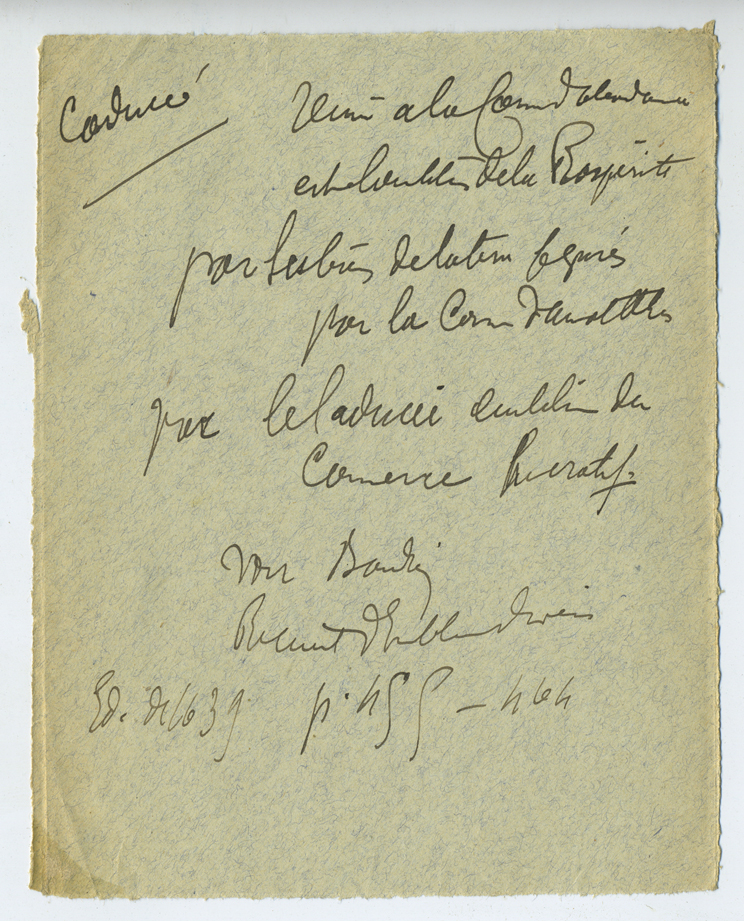 Caducée
Réuni a la Corne d'abondance
est l'emblème de la Prospérité
par les biens de la terre figurés
par la Corne d'Amalthée
par le Caducée emblème du
Comerce lucratif.
Voir Baudoin
Recueil d'Emblèmes divers
Ed. de 1639 p. 455 – 464